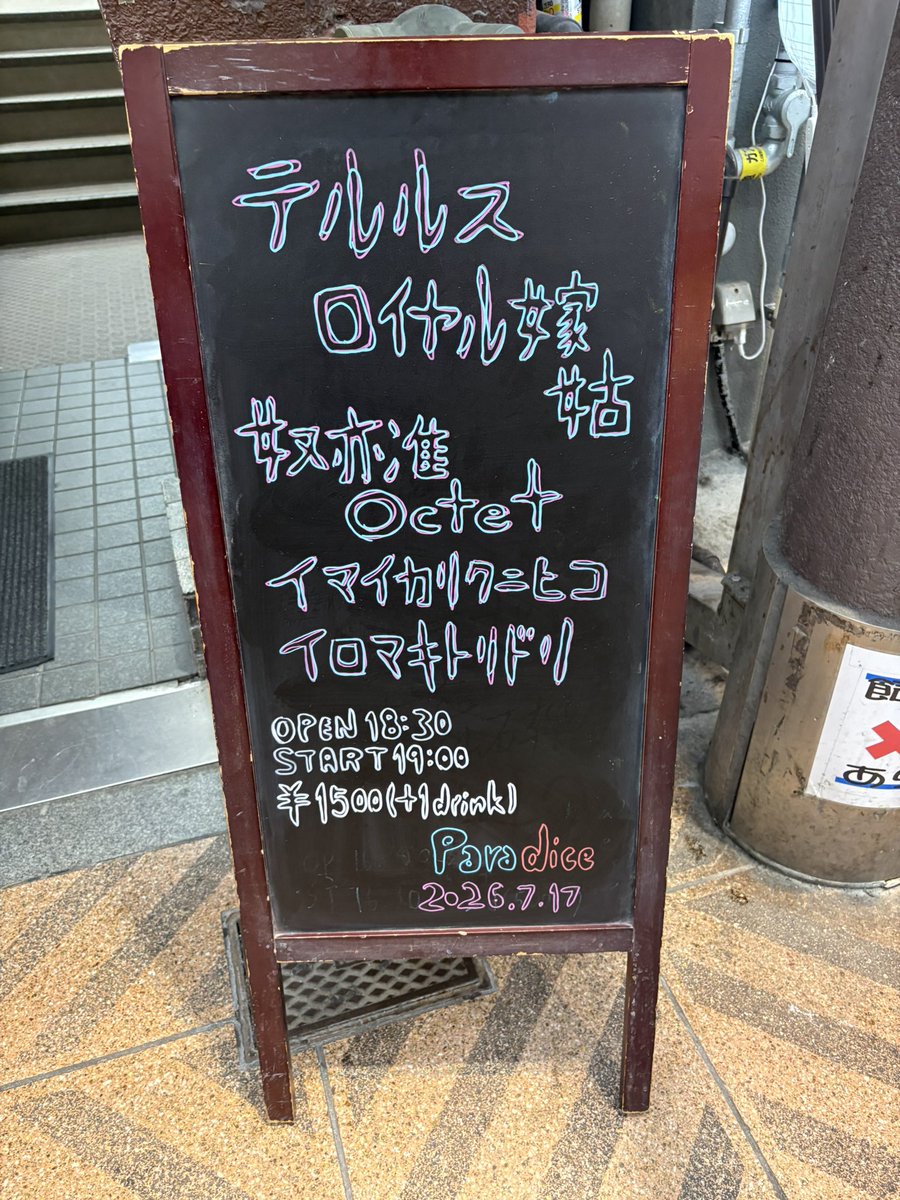 テルルス
ロイヤル嫁
姑
奴亦准
Octet
イマイカリクニヒコ
イロマキトリドリ
OPEN 18:30
START 19:00
¥1500(+1drink)
Paradice
2026.7.17
ガ
あ